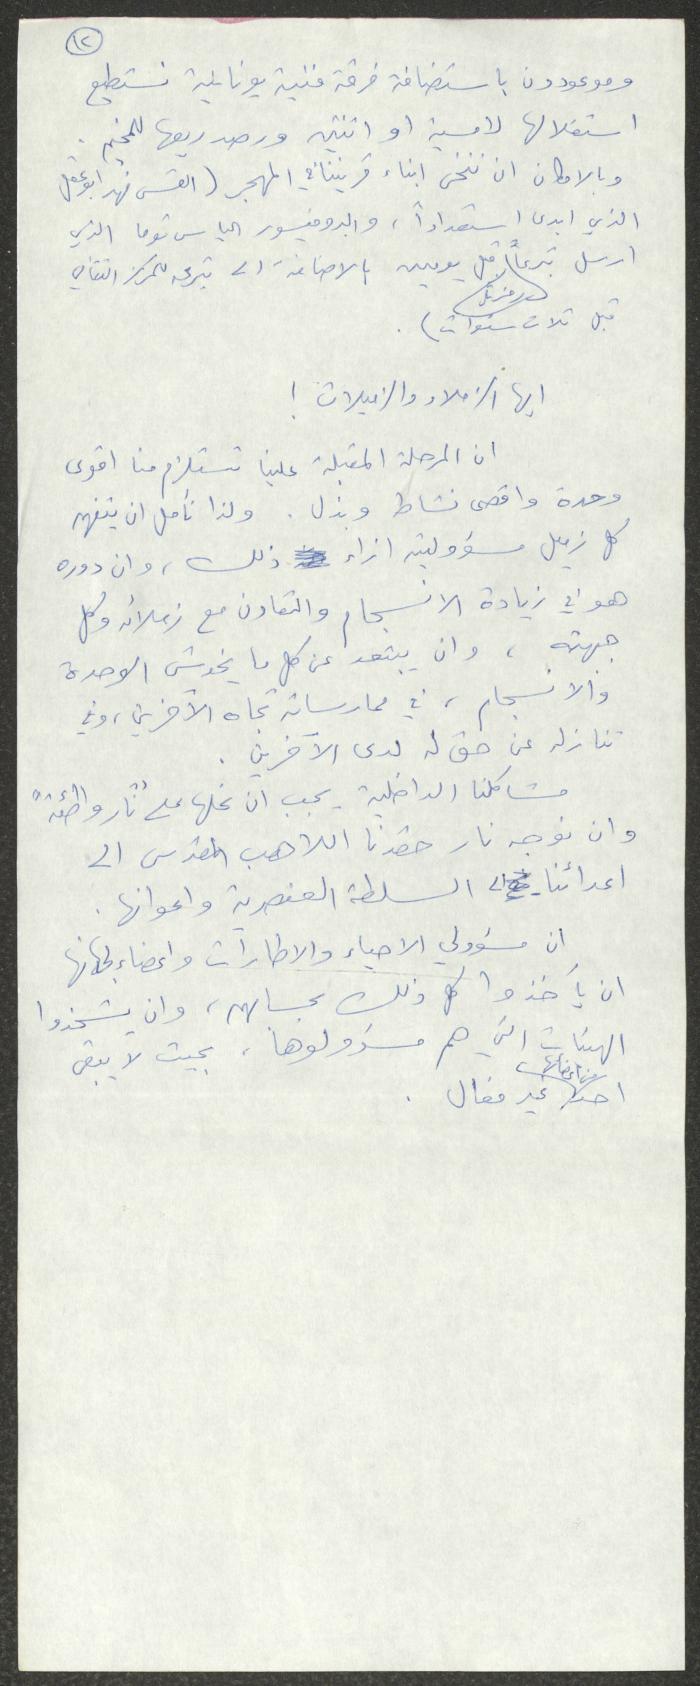 ١٢
وموعودون باستضافة فرقة فنية يونانية نستطيع
استغلالها لامسية او اثنتين ورصد ريعها للمخيم .
وبالامكان ان ننخى ابناء قريتنا في المهجر ( القس فهد ابو عقل
الذي ابدى استعداداً ، والبروفيسور الياس توما الذي
ارسل تبرعاً قبل يومين بالاضافة الى تبرعه للمركز الثقافي
قبل ثلاث سنوات ) .
ايها الزملاء والزميلات !
ان المرحلة المقبلة علينا تستلزم منا اقوى
وحدة واقصى نشاط وبذل . ولذا نأمل ان يتفهم
كل زميل مسؤوليته ازاء ذلك ، وان دوره
هو في زيادة الانسجام والتعاون مع زملائه وكل
جهته ، وان يبتعد عن كل ما يخدش الوحدة
والانسجام ، في ممارساته تجاه الآخرين ، وفي
تنازله عن حق له لدى الآخرين .
مشاكلنا الداخلية يجب ان نحلها على "نار واطئة"
وان نوجه نار حقدنا اللاهب المقدس الى
اعدائنا السلطة العنصرية واعوانها .
ان مسؤولي الاحياء والاطارات واعضاء لجانها
ان يأخذوا كل ذلك بحسابهم ، وان يشحذوا
الهيئات التي هم مسؤولوها ، بحيث لا يبقى
احد من اعضائها غير فعال .